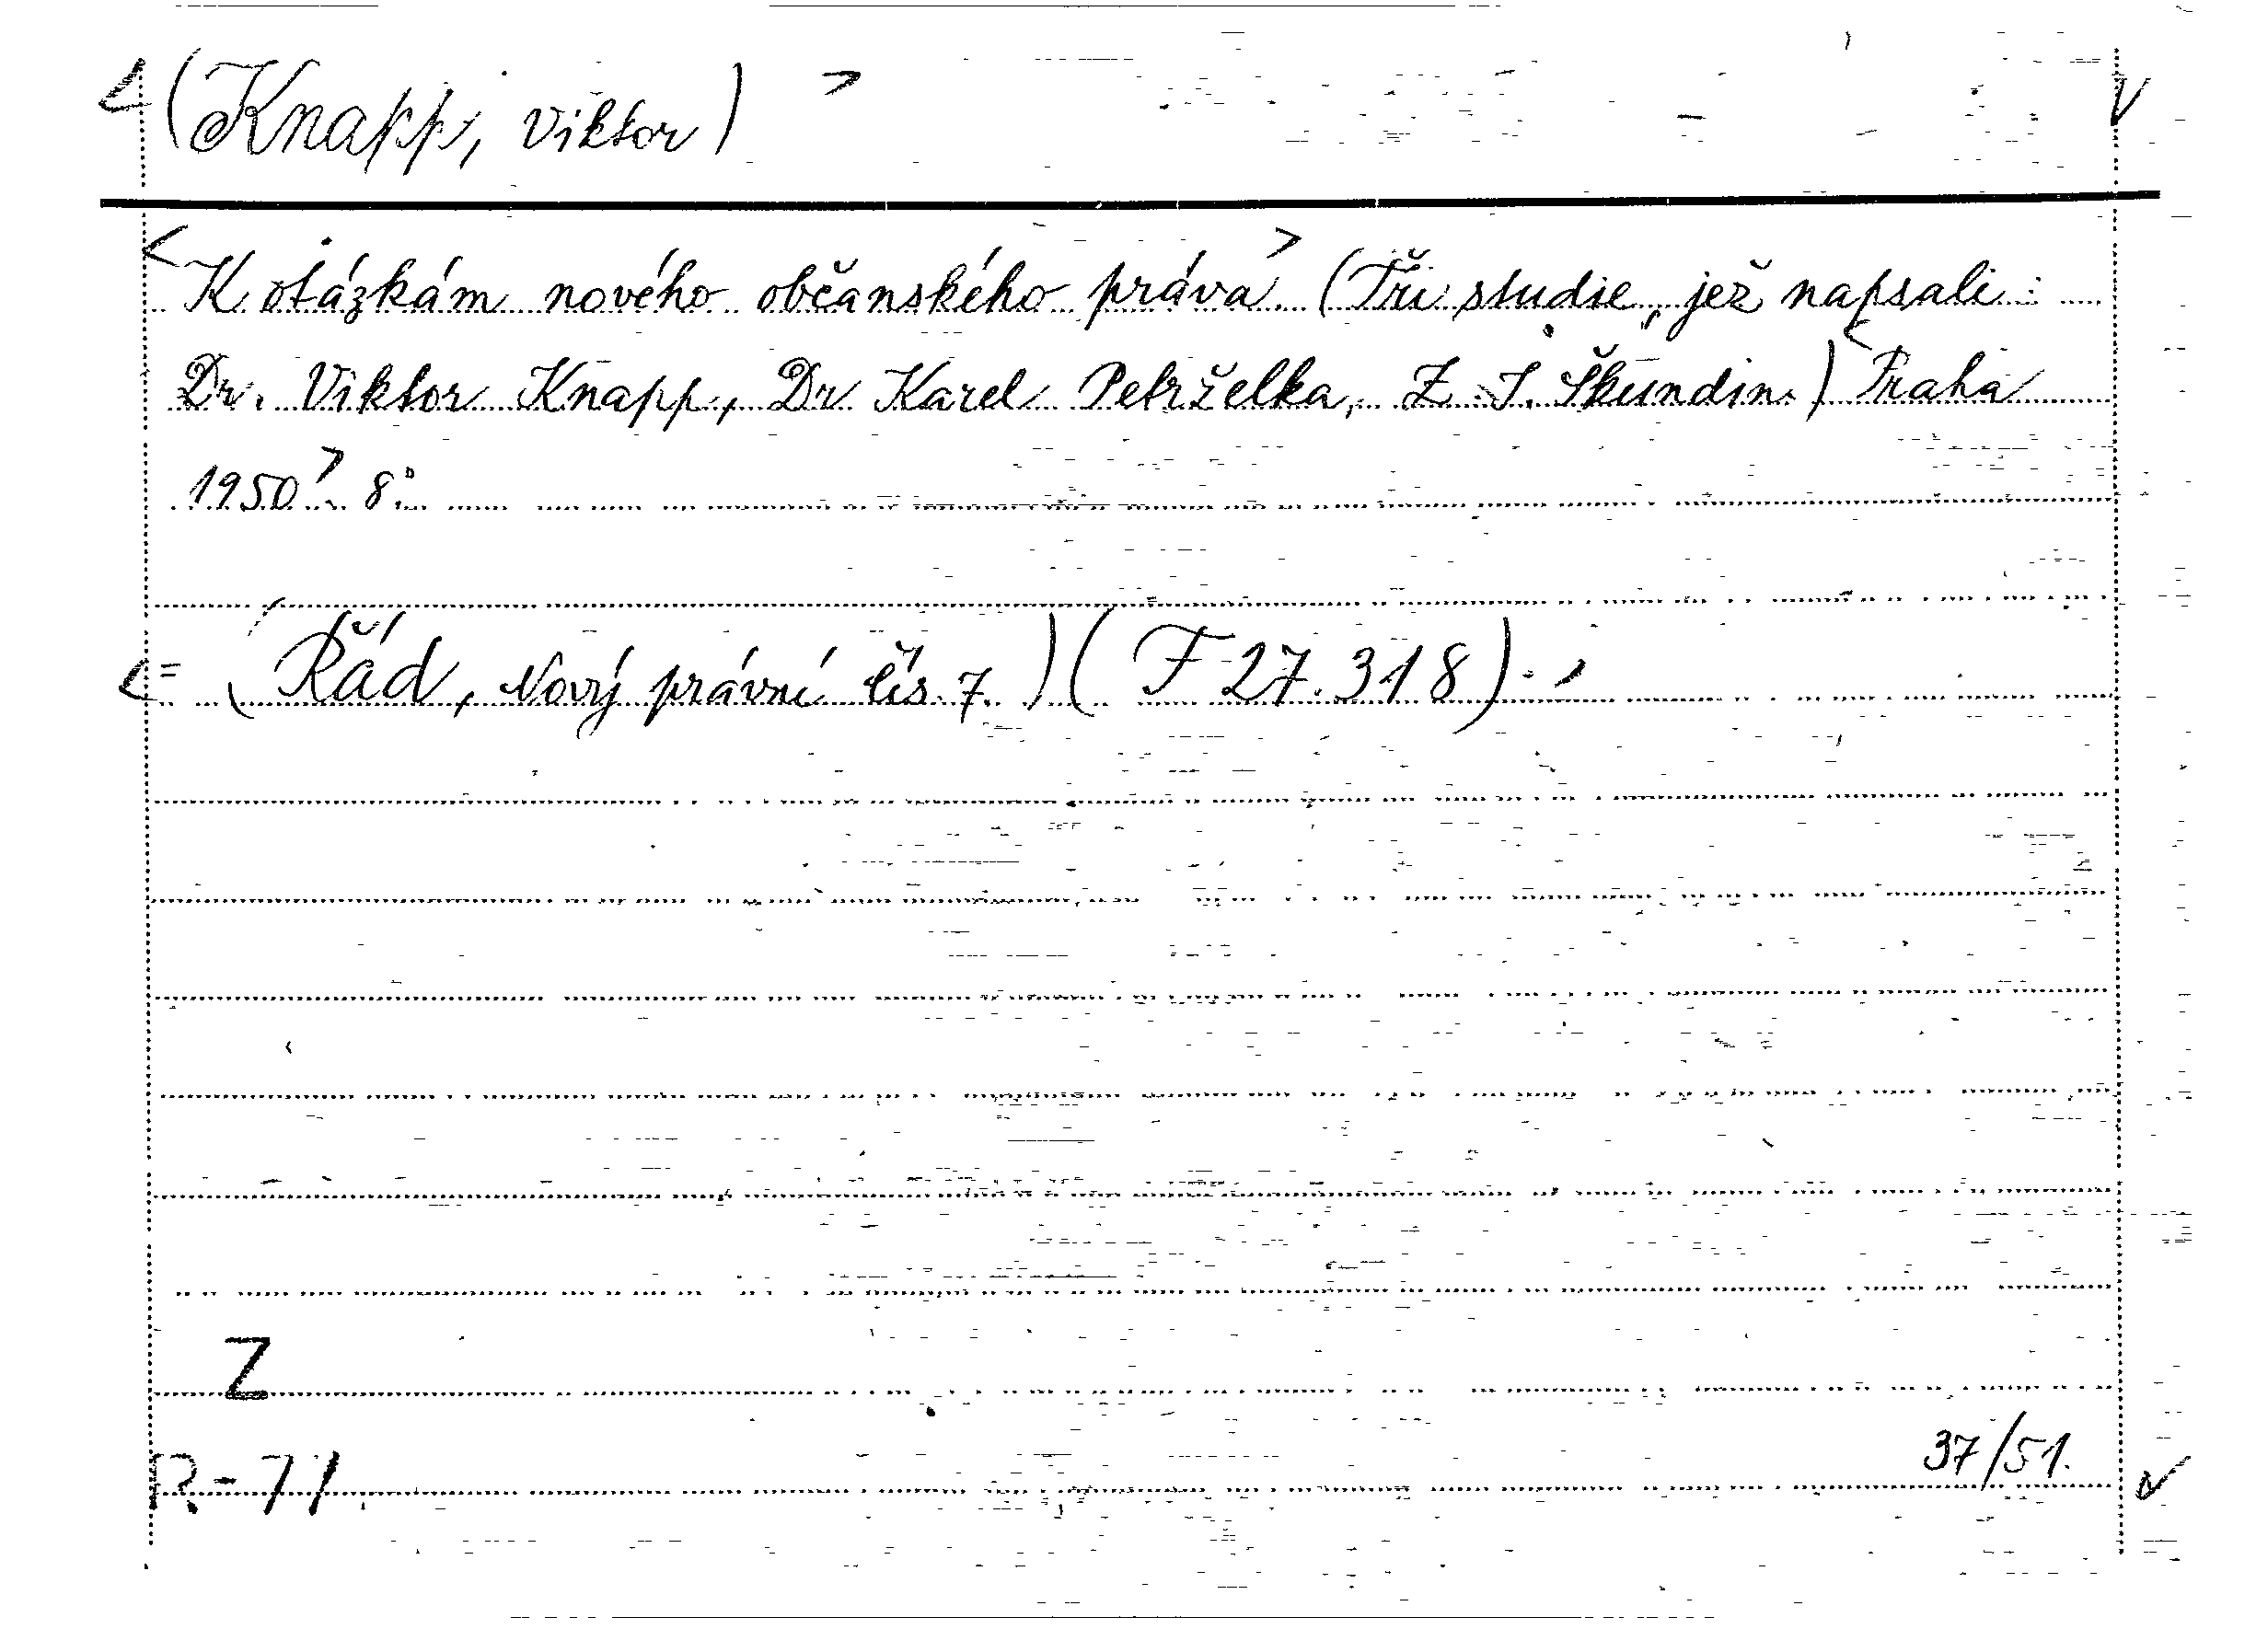 <(Knapp, Viktor)> V
<K otázkám nového občanského práva.> (Tři studie, jež napsali:
Dr. Viktor Knapp, Dr Karel Petrželka, Z. I. Škundin.) <Praha
1950>. 8°.
<= (Řád, Nový právní čís. 7.) (F 27.318).>
Z
37/51.
R-71. V